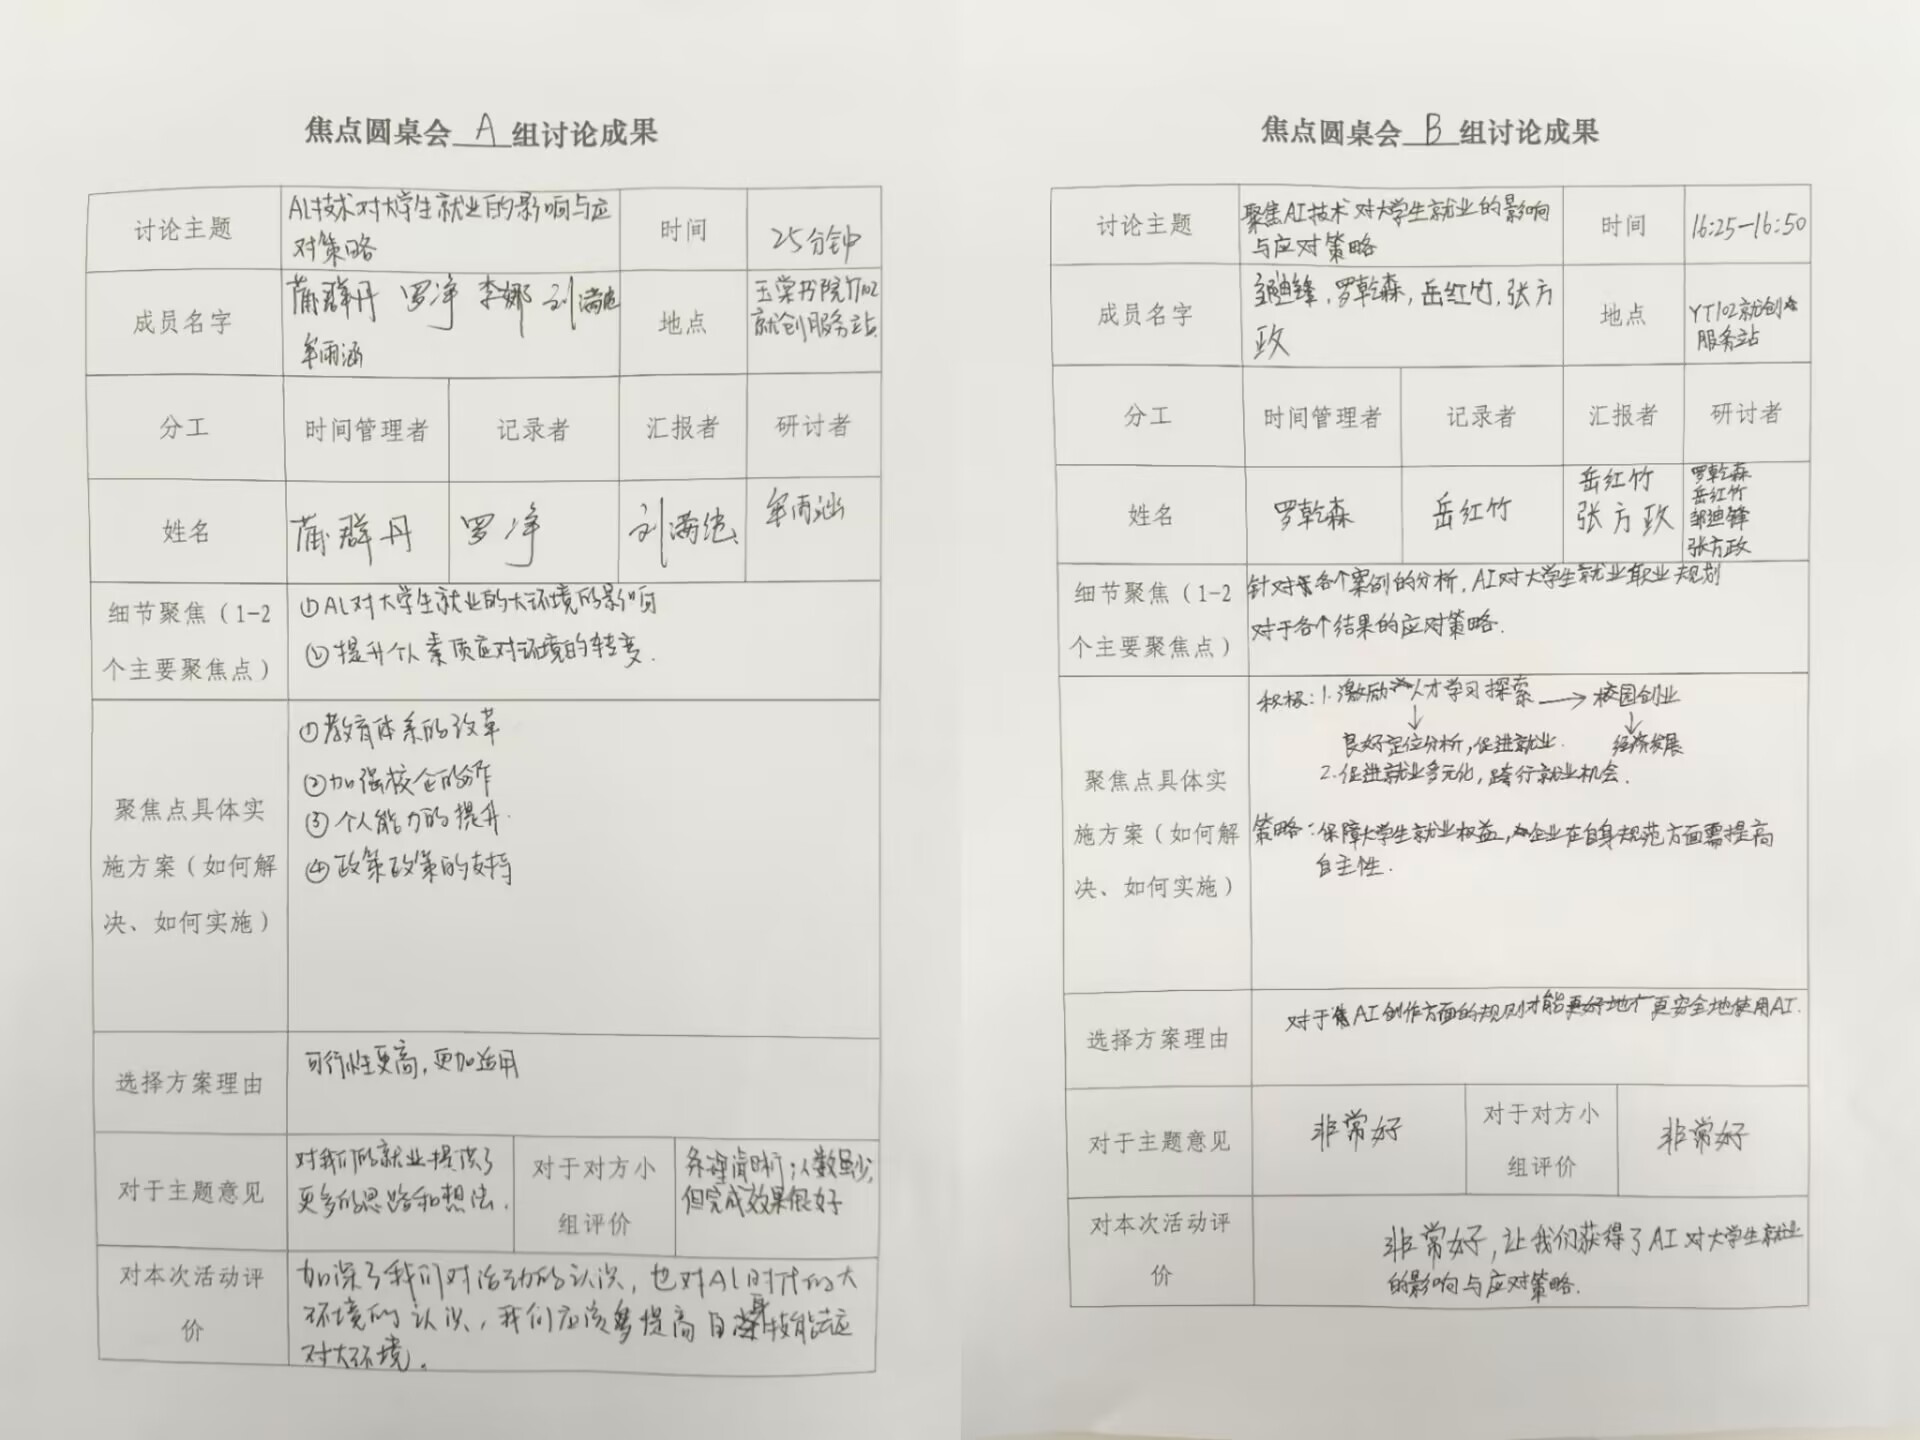 焦点圆桌会 A 组讨论成果
讨论主题
AL技术对大学生就业的影响与应
对策略
时间
25分钟
成员名字
蒲群丹 罗净 李娜 刘满
牟雨涵
地点
玉棠书院Y102
就创服务站
分工
时间管理者
记录者
汇报者
研讨者
姓名
蒲群丹
罗净
刘满
牟雨涵
细节聚焦（1-2
个主要聚焦点）
①AL对大学生就业的大环境的影响
②提升个人素质应对环境的转变.
聚焦点具体实
施方案（如何解
决、如何实施）
①教育体系的改革
②加强校企的合作
③个人能力的提升.
④政策政策的支持
选择方案理由
可行性更高,更加适用
对于主题意见
对我们的就业提供了
更多的思路和想法.
对于对方小
组评价
条理清晰;人数虽少,
但完成效果很好
对本次活动评
价
加深了我们对活动的认识,也对AL时代的大
环境的认识,我们应该多提高自身技能去应
对大环境.
焦点圆桌会 B 组讨论成果
讨论主题
聚焦AI技术对大学生就业的影响
与应对策略
时间
16:25-16:50
成员名字
邹迪锋,罗乾森,岳红竹,张方
政
地点
YT102就创
服务站
分工
时间管理者
记录者
汇报者
研讨者
姓名
罗乾森
岳红竹
岳红竹
张方政
罗乾森
岳红竹
邹迪锋
张方政
细节聚焦（1-2
个主要聚焦点）
针对于各个案例的分析,AI对大学生就业职业规划
对于各个结果的应对策略.
聚焦点具体实
施方案（如何解
决、如何实施）
积极:1.激励人才学习探索→校园创业
↓ ↓
良好定位分析,促进就业. 经济发展
2.促进就业多元化,跨行就业机会.
策略:保障大学生就业权益,企业在自身规范方面需提高
自主性.
选择方案理由
对于AI创作方面的规则才能更安全地使用AI.
对于主题意见
非常好
对于对方小
组评价
非常好
对本次活动评
价
非常好,让我们获得了AI对大学生就业
的影响与应对策略.